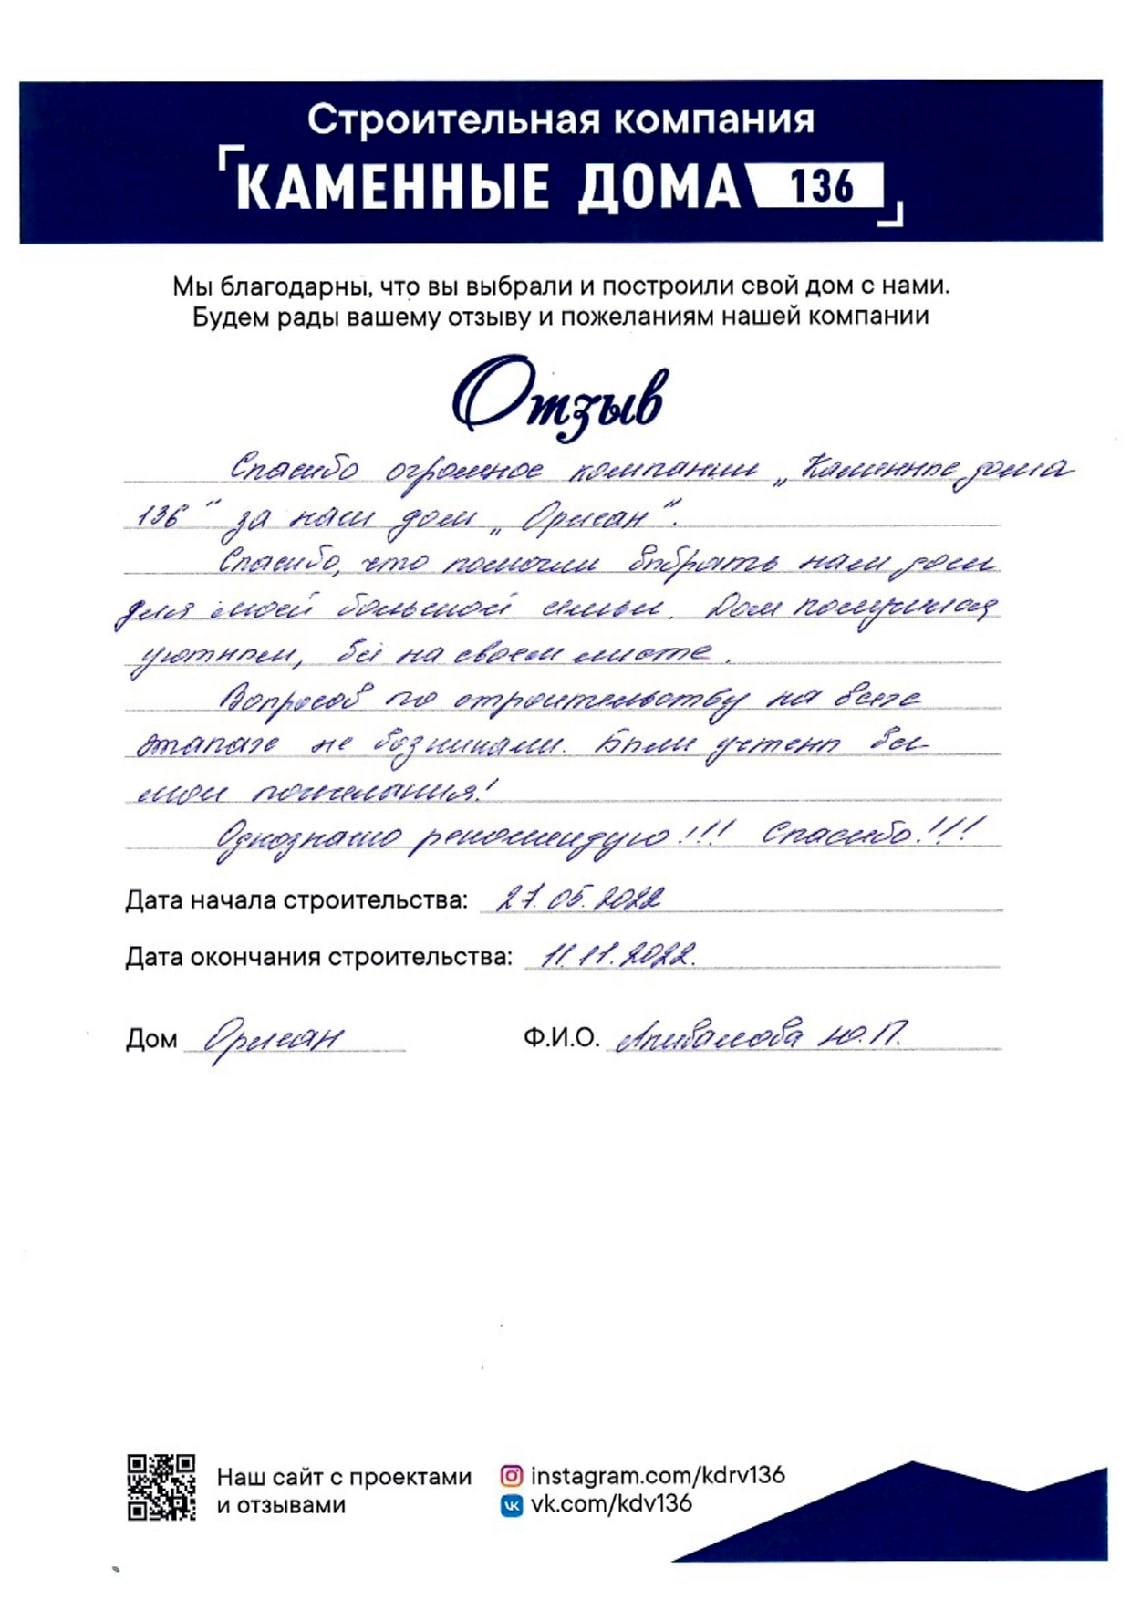 Строительная компания
КАМЕННЫЕ ДОМА 136
Мы благодарны, что вы выбрали и построили свой дом с нами.
Будем рады вашему отзыву и пожеланиям нашей компании
Отзыв
Спасибо огромное компании „Каменные дома
136“ за наш дом „Орисан“.
Спасибо, что помогли выбрать наш дом
для моей большой семьи. Дом получился
уютным, всё на своем месте.
Вопросов по строительству на всех
этапах не возникали. Были учтены все
мои пожелания!
Однозначно рекомендую!!! Спасибо!!!
Дата начала строительства: 27.05.2022
Дата окончания строительства: 11.11.2022.
Дом Орисан Ф.И.О. Ю.П.
Наш сайт с проектами
и отзывами
instagram.com/kdrv136
vk.com/kdv136